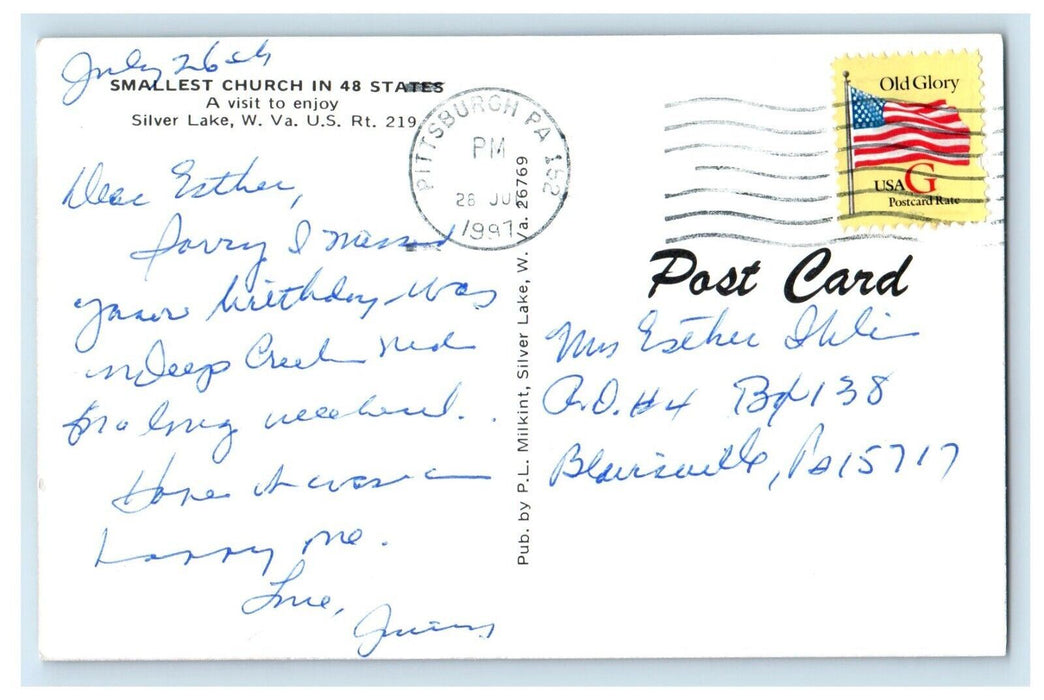 July 26th
SMALLEST CHURCH IN 48 STATES
A visit to enjoy
Silver Lake, W. Va. U.S. Rt. 219
Dear Esther,
Sorry I missed
your birthday - was
in Deep Creek Md
for a long weekend.
Hope it was a
happy one.
Love,
PITTSBURGH PA 152
PM
28 JUL
1997
Pub. by P.L. Milkint, Silver Lake, W. Va. 26769
Old Glory
USA G
Postcard Rate
Post Card
Mrs Esther
R.D. #4 Bx 138
Blairsville, Pa 15717